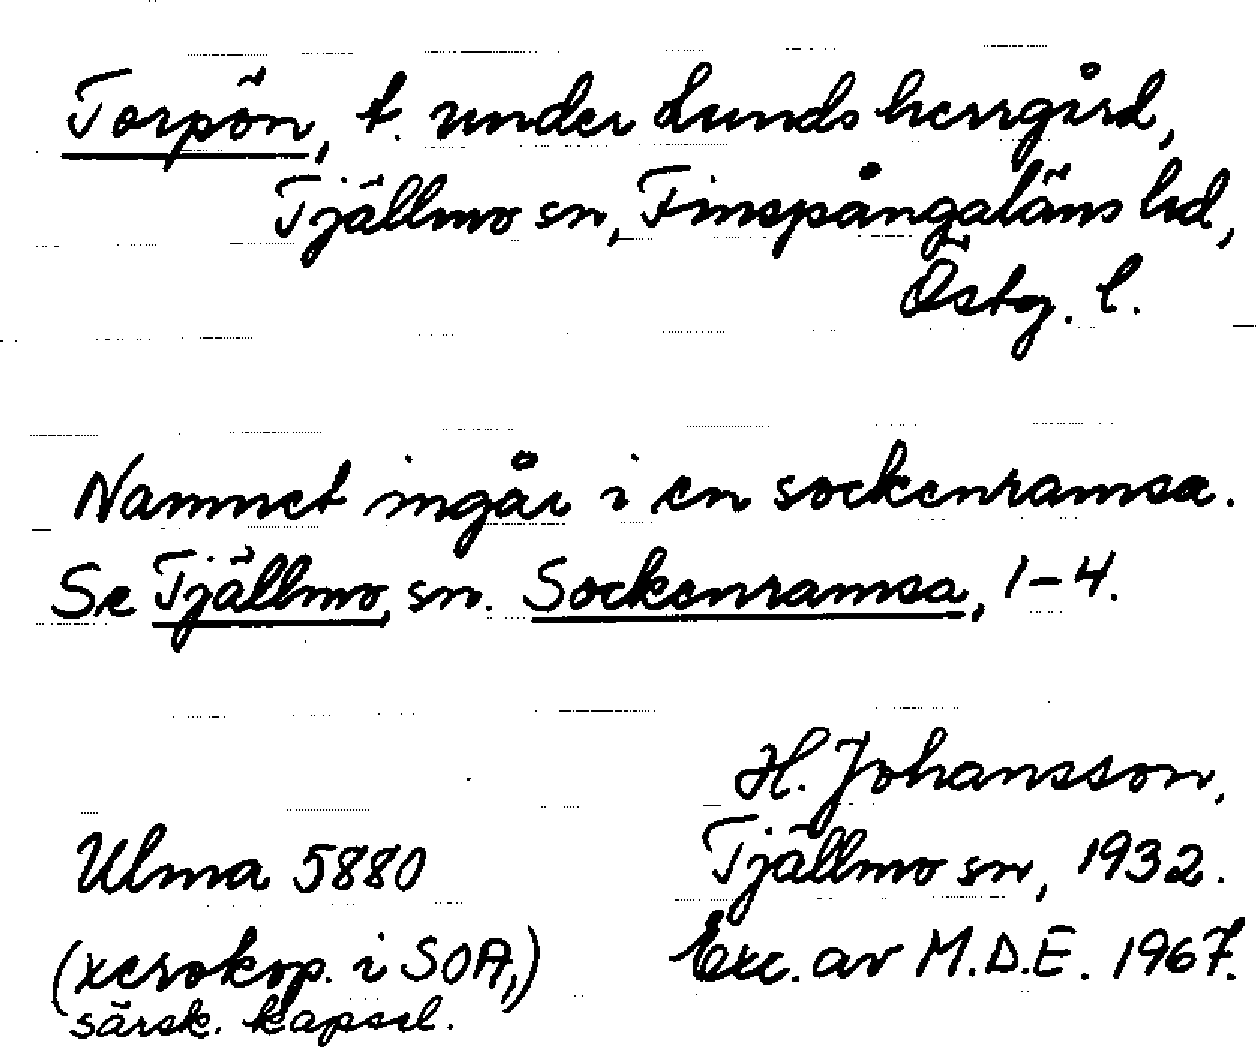 Torpön, t. under Lunds herrgård,
Tjällmo sn, Finspångaläns hd,
Östg. l.
Namnet ingår i en sockenramsa.
Se Tjällmo, sn. Sockenramsa, 1-4.
H. Johansson,
Tjällmo sn, 1932.
Exc. av M.D.E. 1967.
Ulma 5880
(xerokop. i SOA,)
särsk. kapsel.